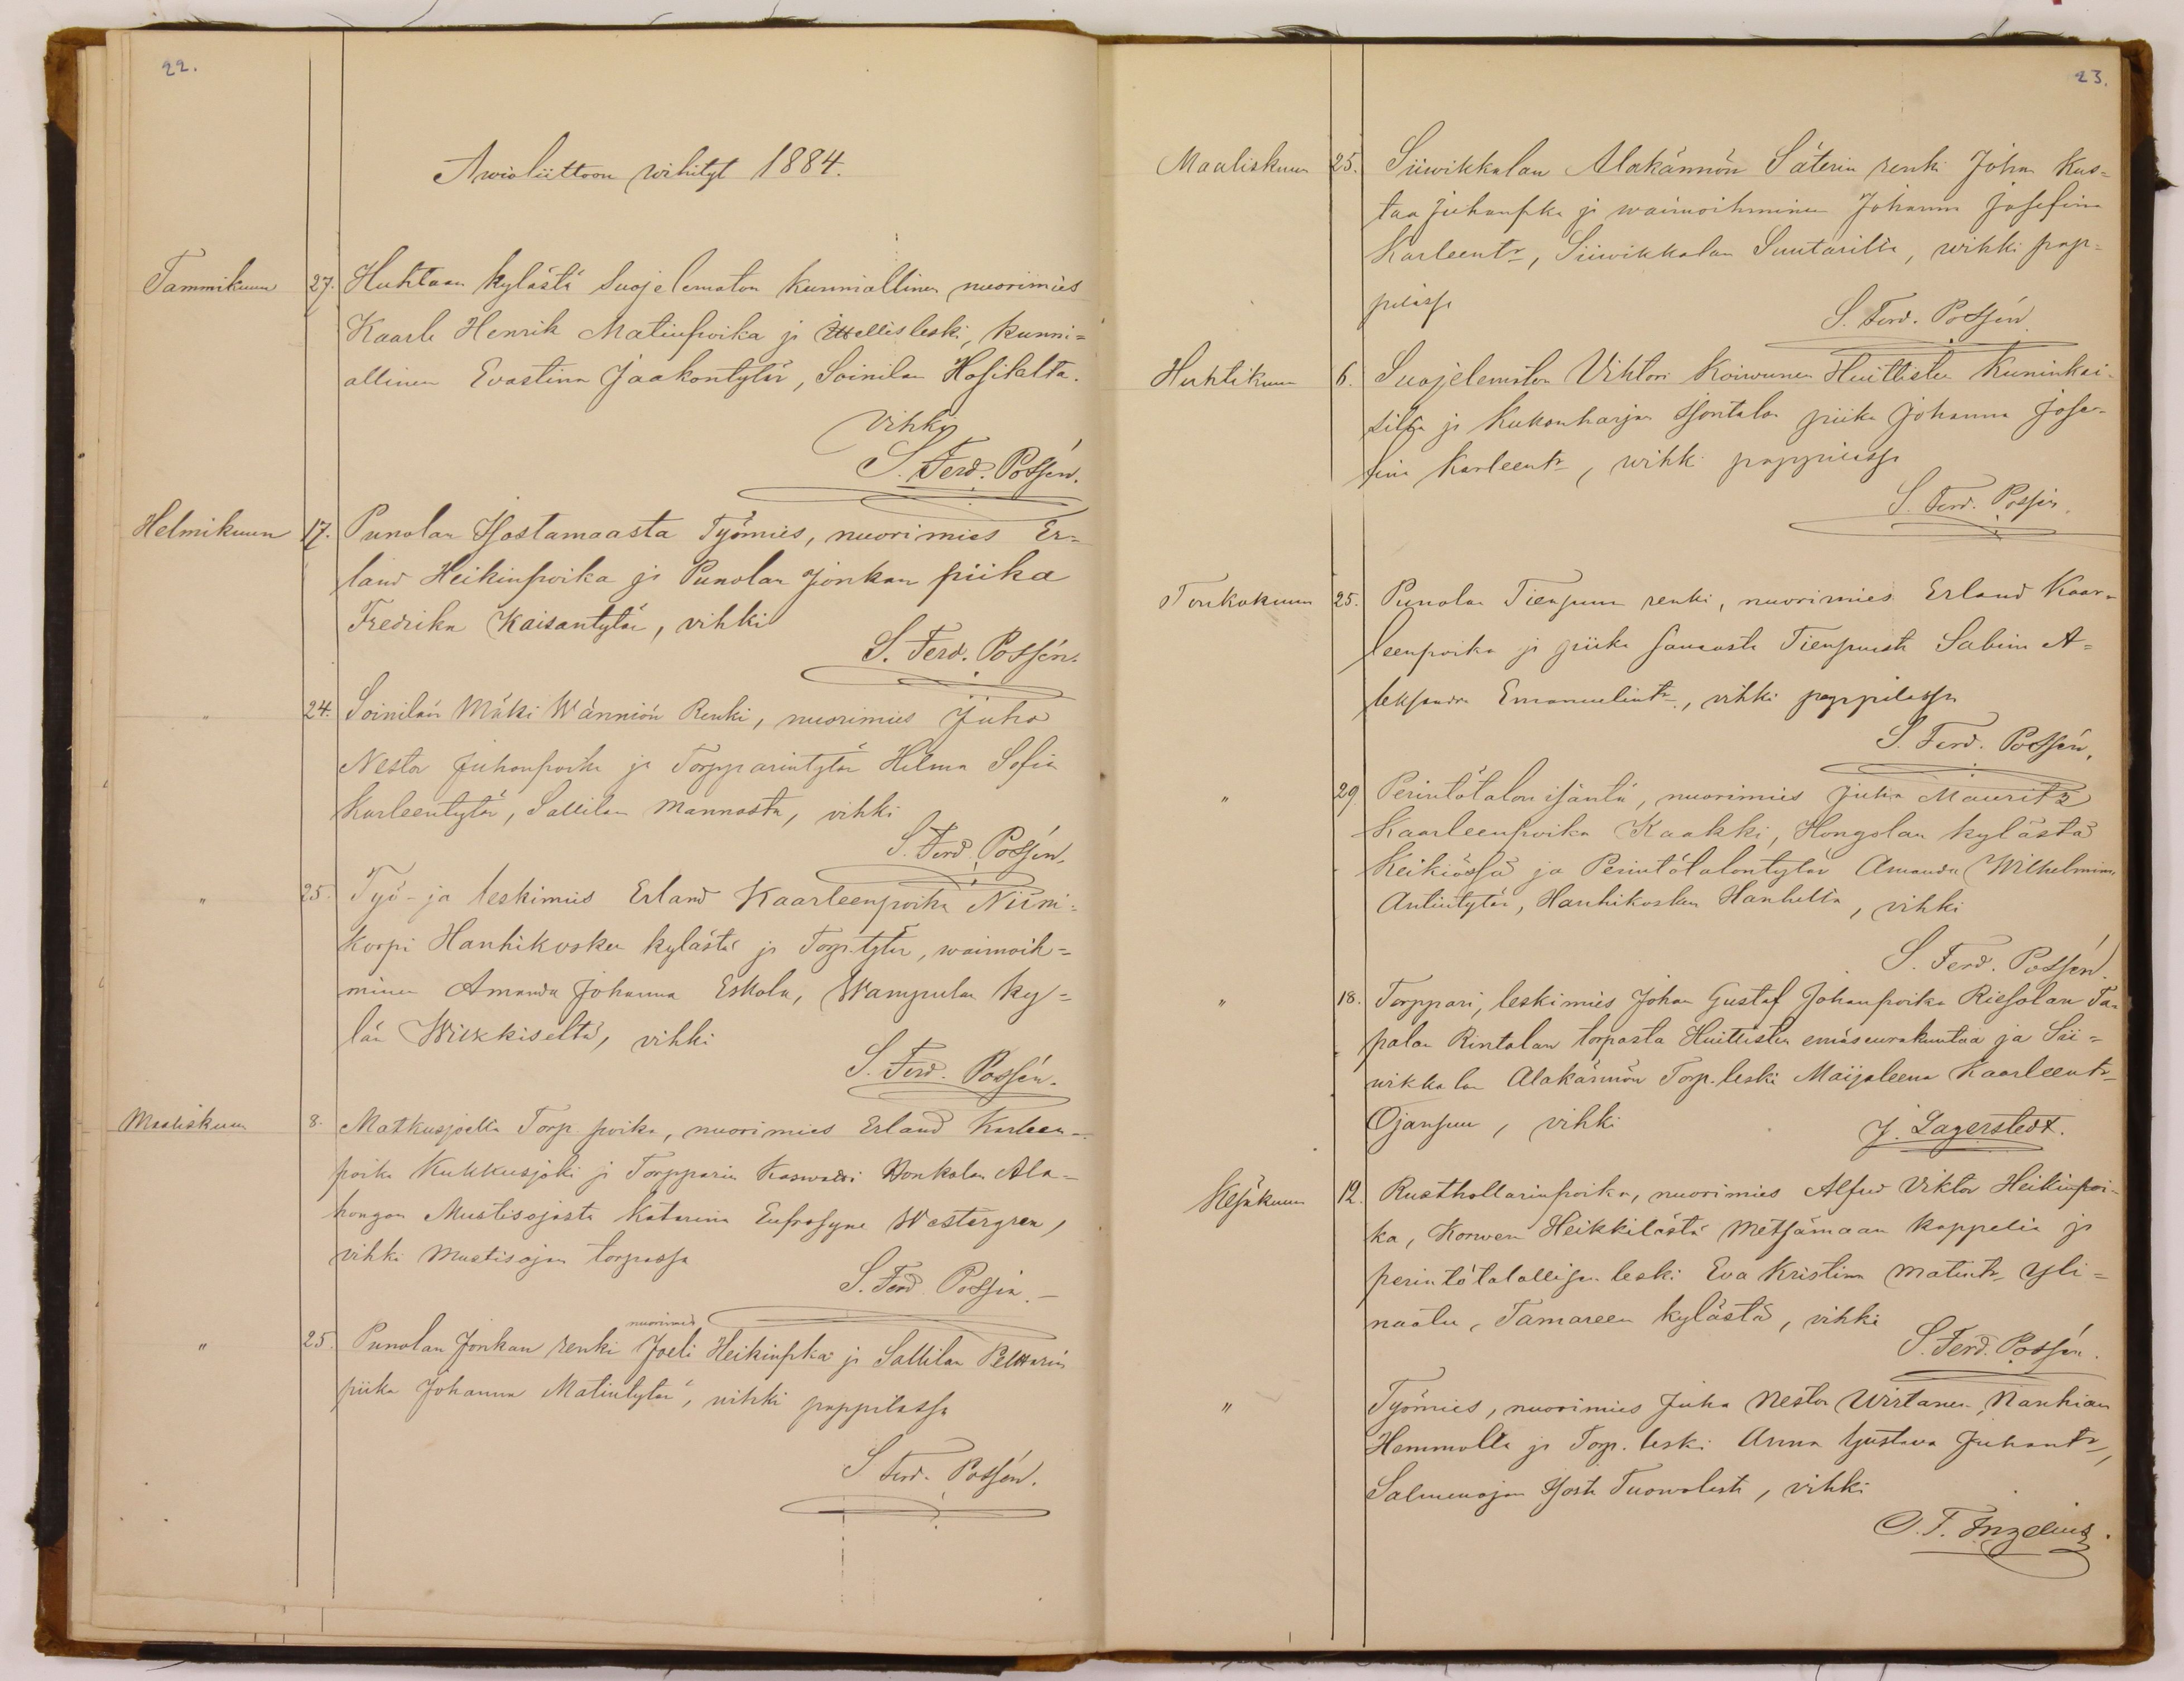 22.
Awioliittoon wihityt 1884.
Tammikuun 27. Huhtaan kylästä suojelematon kunniallinen nuorimies
Kaarle Henrik Matinpoika ja itsellisleski, kunni=
allinen Evastina Jaakontytär, Soinilan Hosikalta.
Vihki
S. Ferd. Possén.
Helmikuun 17. Punolan Isostamaasta Työmies, nuorimies Er=
land Heikinpoika ja Punolan Jonkan piika
Fredrika Kaisantytär, vihki
S. Ferd. Possén.
" 24. Soinilan Mäki Wännion Renki, nuorimies Juho
Nestor Juhonpoika ja Torpparintytär Helma Sofia
Karleentytär, Sallilan Mannosta, vihki
S. Ferd. Possén.
" 25. Työ- ja leskimies Erland Kaarleenpoika Niini=
korpi Hanhikosken kylästä ja Torp.tytär, waimoih=
minen Amanda Johanna Eskola, Wampulan ky=
län Wirkkiseltä, vihki
S. Ferd. Possén.
Maaliskuun 8. Matkusjoella Torp. poika, nuorimies Erland Karleen-
poika Kukkusjoki ja Torpparin Kaswatti Honkolan Ala=
hongon Mustisojasta Katarina Eufrosyne Westergren,
vihki Mustisojan torpassa
S. Ferd. Possén.
" 25. Punolan Jonkan renki nuorimies Joeli Heikinpka ja Sallilan Pelttarin
piika Johanna Matintytär, vihki pappilassa
S. Ferd. Possén.
23.
Maaliskuun 25. Siiwikkalan Alakännön Säterin renki Johan Kus=
taa Juhanpka ja waimoihminen Johanna Josefina
Karleentr, Siiwikkalan Suutarilta, wihki pap=
pilassa
S. Ferd. Possén.
Huhtikuun 6. Suojelematon Vihtori Koiwunen Huittisten Kuninkai=
silta ja Kukonharjan Isontalon piika Johanna Jose=
fina Karleentr, wihki pappilassa
S. Ferd. Possén.
Toukokuun 25. Punolan Tienpuun renki, nuorimies Erland Kaar=
leenpoika ja piika samasta Tienpuusta Sabina A=
leksandra Emanuelintr, vihki pappilassa
S. Ferd. Possén.
" 29 Perintötalon isäntä, nuorimies Juha Mauritz
Kaarleenpoika Kaakki, Hongolan kylästä
Keikiössä ja Perintötalontytär Amanda Wilhelmina
Antintytär, Hanhikosken Hanhelta, vihki
S. Ferd. Possén.
" 18. Torppari, leskimies Johan Gustaf Johanpoika Riesolan Ta=
palan Rintalan torpasta Huittisten emäseurakuntaa ja Sii=
wikkalan Alakännön Torp. leski Maijaleena Kaarleentr
Ojanpuu, vihki
J. Lagerstedt.
Kesäkuun 12. Rusthollarinpoika, nuorimies Alfred Viktor Heikinpoi=
ka, Korwen Heikkilästä Metsämaan kappelia ja
perintötalollisen leski Eva Kristina Matintr Yli=
naatu, Tamareen kylästä, vihki
S. Ferd. Possén.
" Työmies, nuorimies Juha Nestor Wirtanen Nanhian
Hemmolta ja Torp. leski Anna Gustava Juhantr,
Salmenojan Tuowolasta, vihki